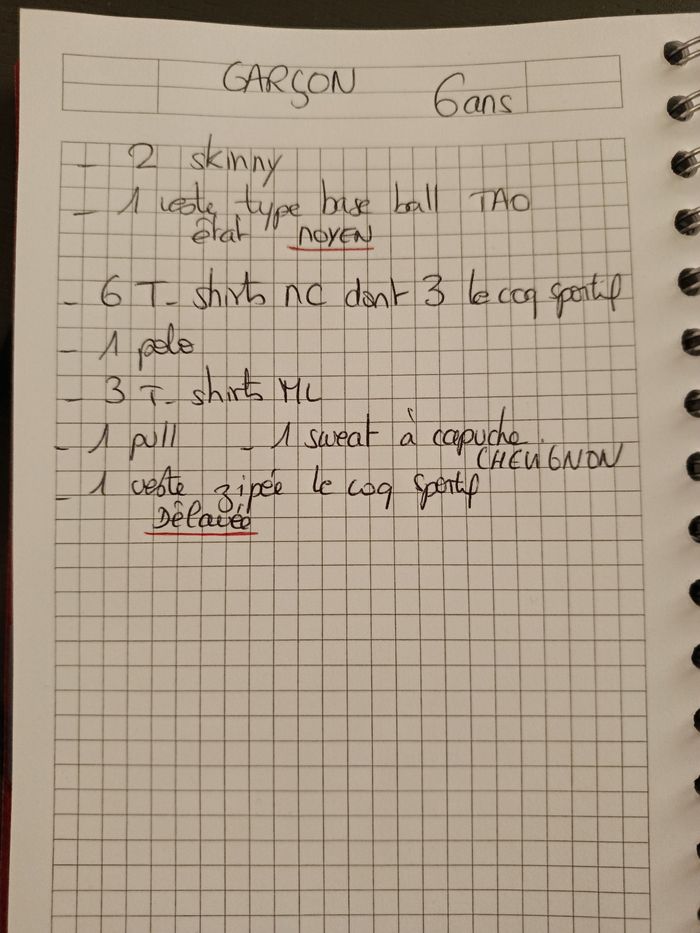 GARÇON 6 ans
- 2 skinny
- 1 veste type base ball TAO
état MOYEN
- 6 T-shirts MC dont 3 le coq sportif
- 1 polo
- 3 T-shirts ML
- 1 pull - 1 sweat à capuche.
CHEVIGNON
- 1 veste zipée le coq sportif
Délavée